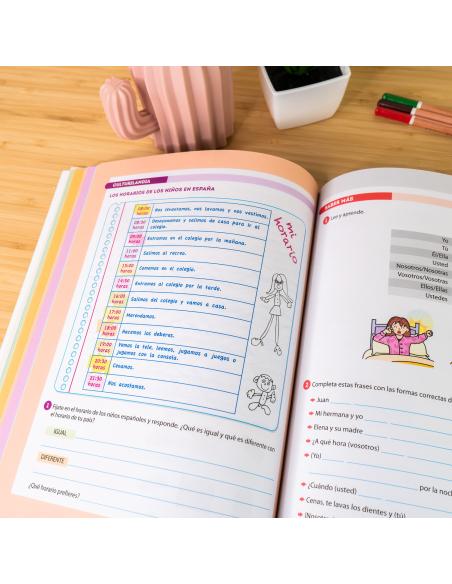 CULTURILANDIA
LOS HORARIOS DE LOS NIÑOS EN ESPAÑA
mi
horario
08:00
horas
Nos levantamos, nos lavamos y nos vestimos.
08:30
horas
Desayunamos y salimos de casa para ir al
colegio.
09:00
horas
Entramos en el colegio por la mañana.
11:00
horas
Salimos al recreo.
13:00
horas
Comemos en el colegio.
14:30
horas
Entramos al colegio por la tarde.
16:00
horas
Salimos del colegio y vamos a casa.
17:00
horas
Merendamos.
18:00
horas
Hacemos los deberes.
19:00
horas
Vemos la tele, leemos, jugamos a juegos o
jugamos con la consola.
20:30
horas
Cenamos.
21:30
horas
Nos acostamos.
Fíjate en el horario de los niños españoles y responde. ¿Qué es igual y qué es diferente con
el horario de tu país?
IGUAL
DIFERENTE
¿Qué horario prefieres?
SABER MÁS
1 Lee y aprende.
Yo
Tú
Él/Ella
Usted
Nosotros/Nosotras
Vosotros/Vosotras
Ellos/Ellas
Ustedes
2 Completa estas frases con las formas correctas d
Juan
Mi hermana y yo
Elena y su madre
¿A qué hora (vosotros)
(Yo)
¿Cuándo (usted) por la noch
Cenas, te lavas los dientes y (tú)